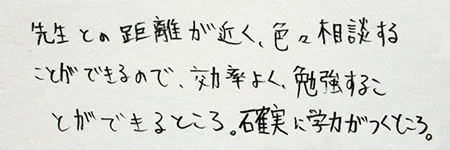 先生との距離が近く、色々相談する
ことができるので、効率よく、勉強するこ
とができるところ。確実に学力がつくところ。